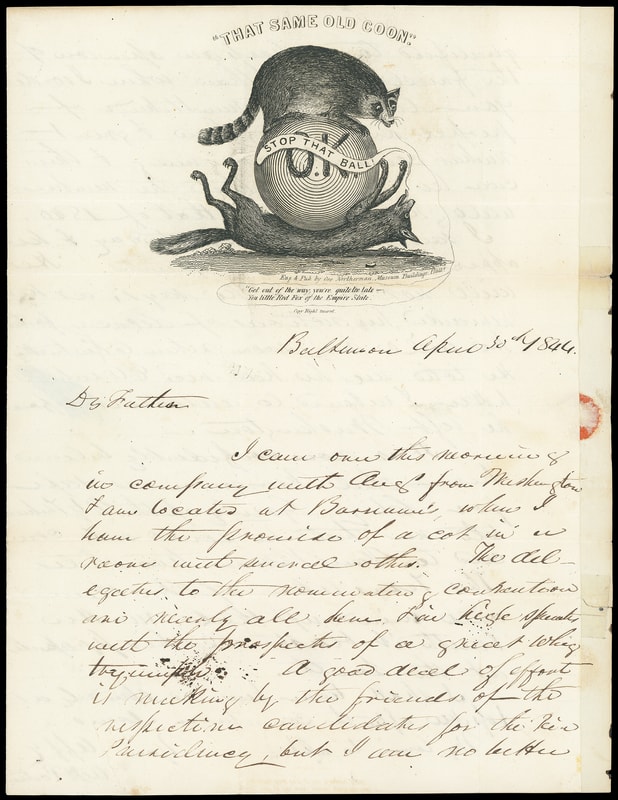 "THAT SAME OLD COON."
O.K
STOP THAT BALL!
Eng. & Pub. by Museum Buildings, Phila.
"Get out of the way, you're quite too late —
You little Red Fox of the Empire State.
Copy Right secured
Baltimore April 30th 1844.
Dr Father
I came over this morning
in company with Augs from Washington
I am located at Barnum's where I
have the promise of a cot in a
room with several others. The del-
egates to the nominating convention
are nearly all here in high
with the prospects of a great Whig
triumph. A good deal of effort
is making by the friends of the
respective candidates for the Vice
Presidency, but I am no better